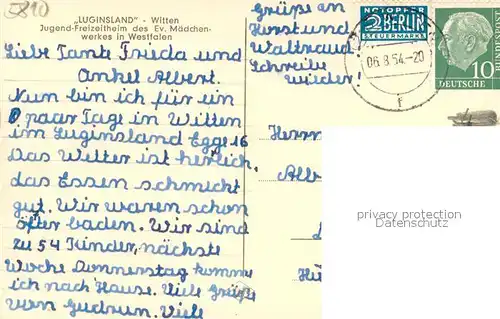 5810
„LUGINSLAND" · Witten
Jugend-Freizeitheim des Ev. Mädchen-
werkes in Westfalen
Liebe Tante Frieda und
Onkel Albert.
Nun bin ich für ein
paar Tage in Witten
im Luginsland Egge 16
Das Wetter ist herlich.
das Essen schmeckt
gut. Wir waren schon
öfter baden. Wir sind
zu 54 Kinder, nächste
Woche Donnerstag komme
ich nach Hause. Viele Grüße
von Gudrun. Viele
Grüße an
Horst und
Waltraud
Schreibe
wieder.
NOTOPFER
2 BERLIN
STEUERMARKE
06.8.54.-20
f
10
DEUTSCHE
BUNDESPOST
Herrn
Alb
privacy protection
watermark